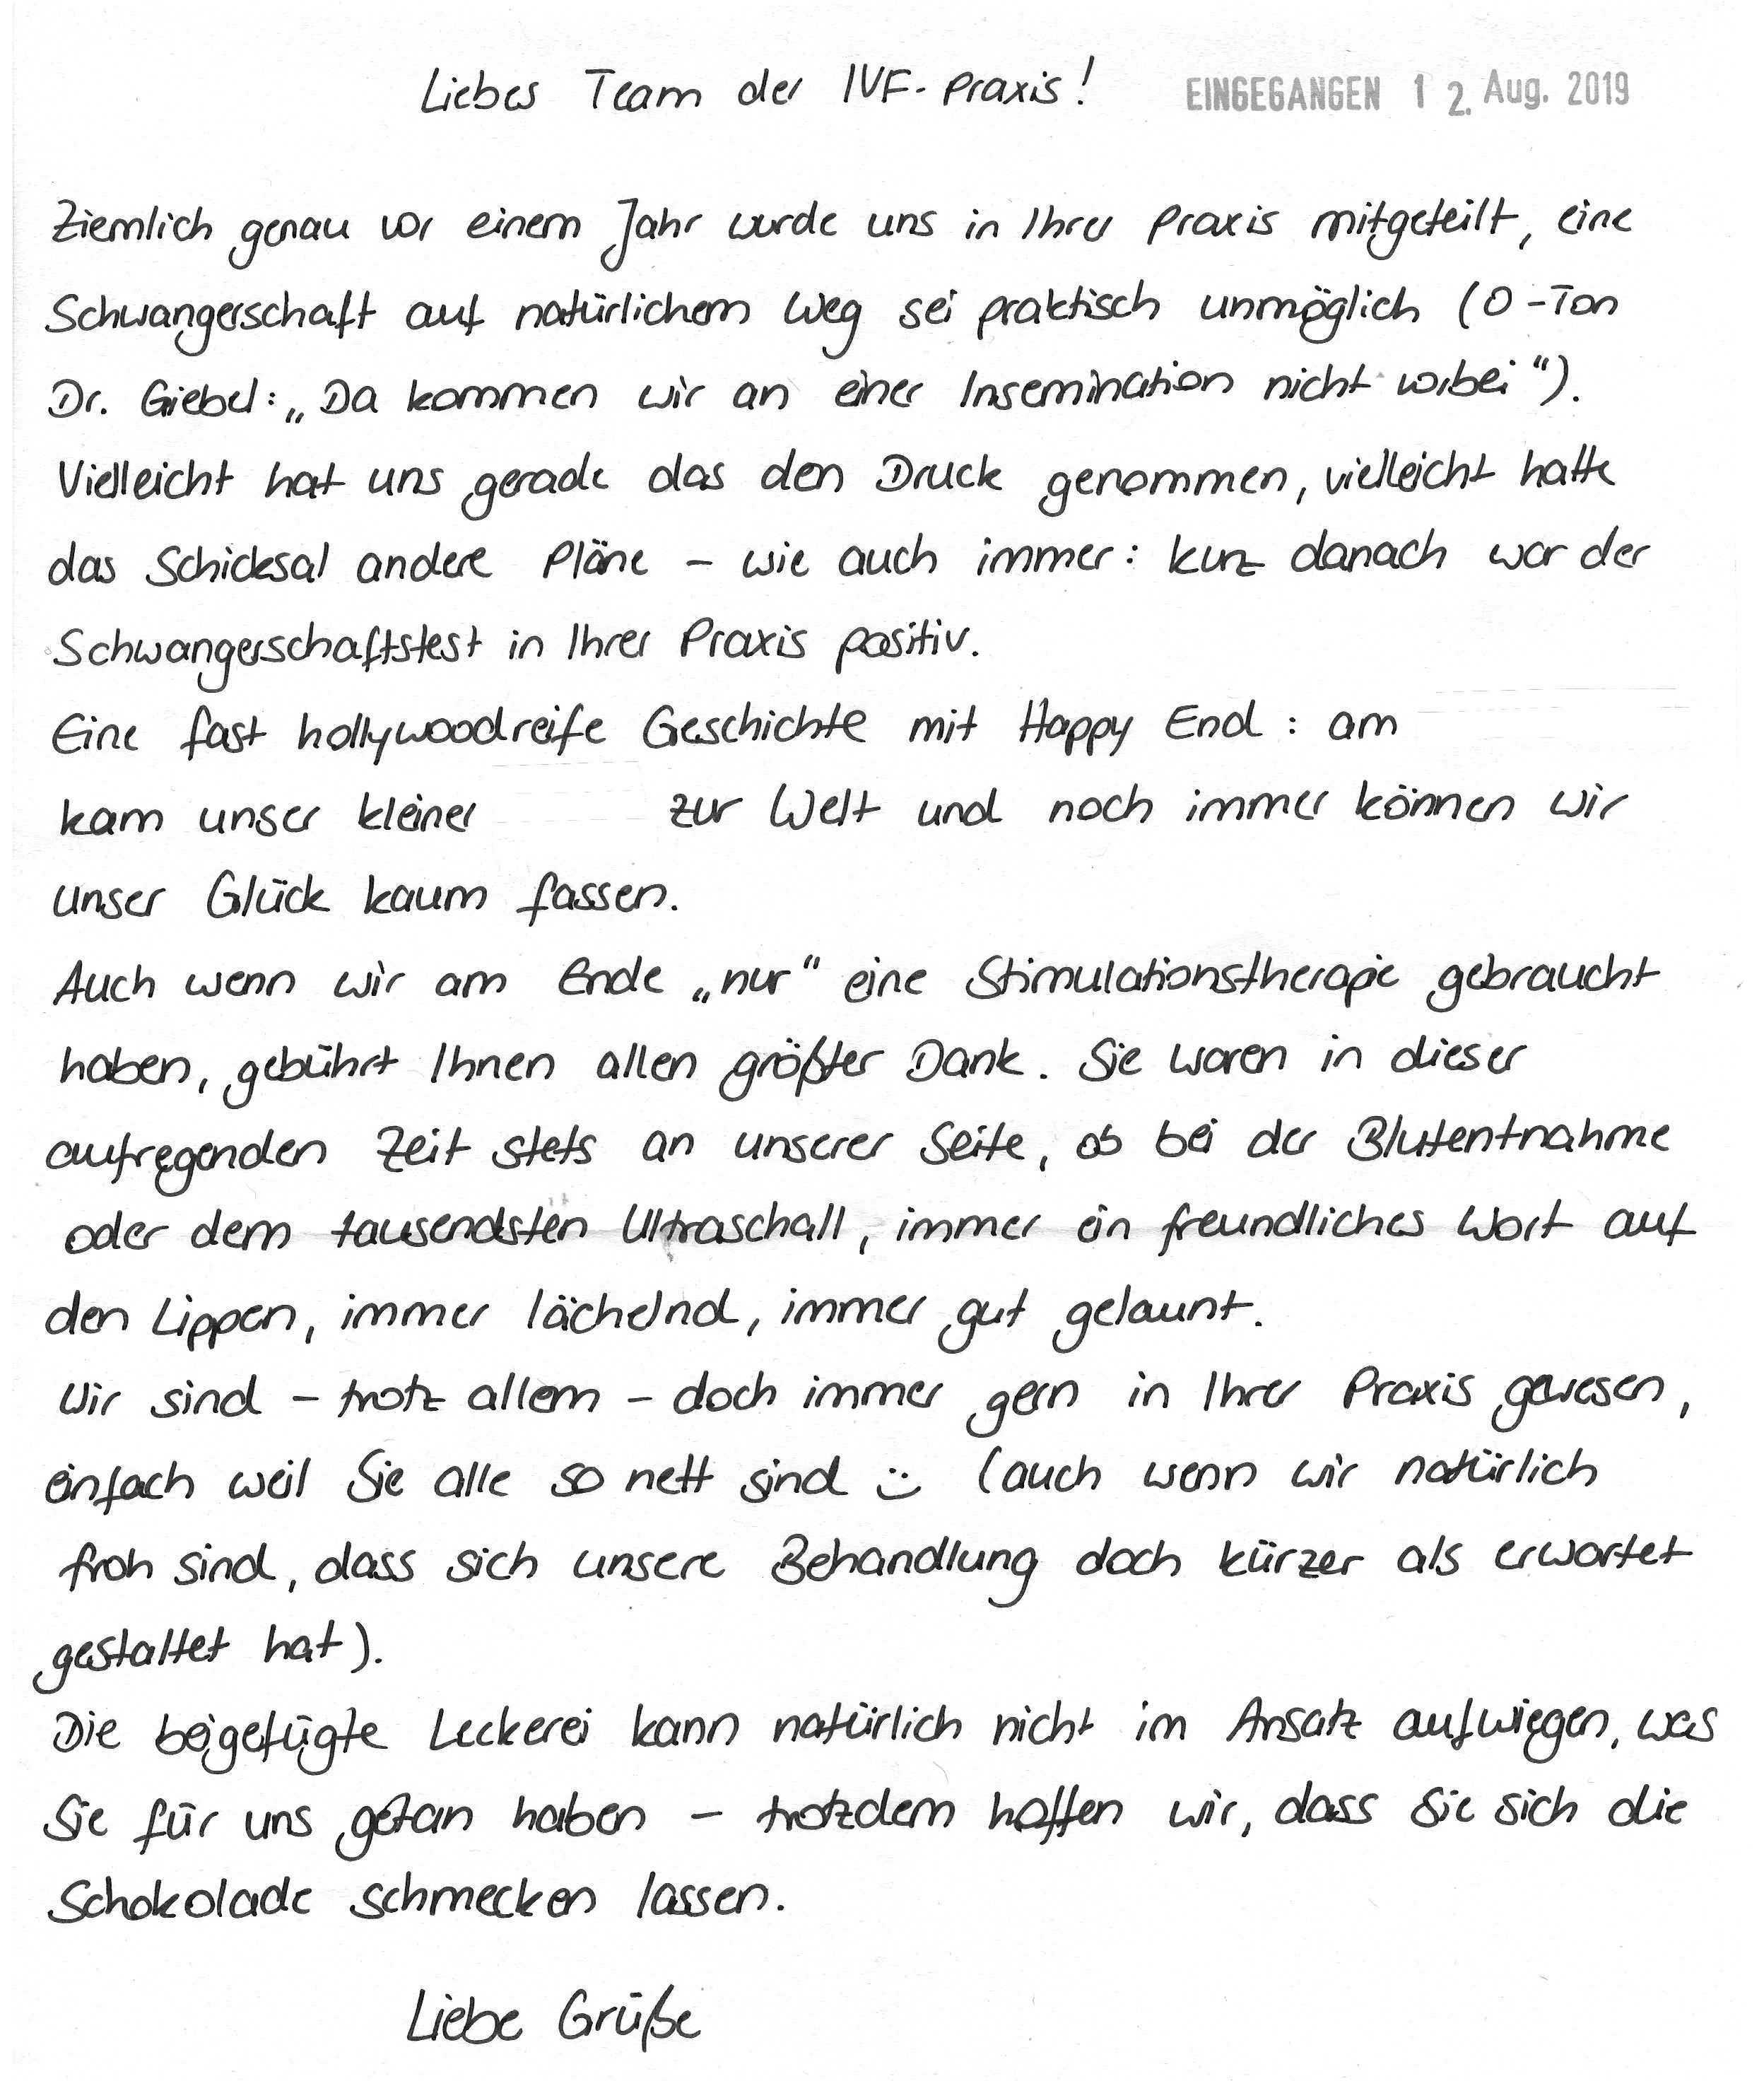 Liebes Team der IVF-Praxis! EINGEGANGEN 12. Aug. 2019
Ziemlich genau vor einem Jahr wurde uns in Ihrer Praxis mitgeteilt, eine
Schwangerschaft auf natürlichem Weg sei praktisch unmöglich (O-Ton
Dr. Giebel: „Da kommen wir an einer Insemination nicht vorbei“).
Vielleicht hat uns gerade das den Druck genommen, vielleicht hatte
das Schicksal andere Pläne – wie auch immer: kurz danach war der
Schwangerschaftstest in Ihrer Praxis positiv.
Eine fast hollywoodreife Geschichte mit Happy End: am
kam unser kleiner zur Welt und noch immer können wir
unser Glück kaum fassen.
Auch wenn wir am Ende „nur“ eine Stimulationstherapie gebraucht
haben, gebührt Ihnen allen größter Dank. Sie waren in dieser
aufregenden Zeit stets an unserer Seite, ob bei der Blutentnahme
oder dem tausendsten Ultraschall, immer ein freundliches Wort auf
den Lippen, immer lächelnd, immer gut gelaunt.
Wir sind – trotz allem – doch immer gern in Ihrer Praxis gewesen,
einfach weil Sie alle so nett sind :) (auch wenn wir natürlich
froh sind, dass sich unsere Behandlung doch kürzer als erwartet
gestaltet hat).
Die beigefügte Leckerei kann natürlich nicht im Ansatz aufwiegen, was
Sie für uns getan haben – trotzdem hoffen wir, dass Sie sich die
Schokolade schmecken lassen.
Liebe Grüße